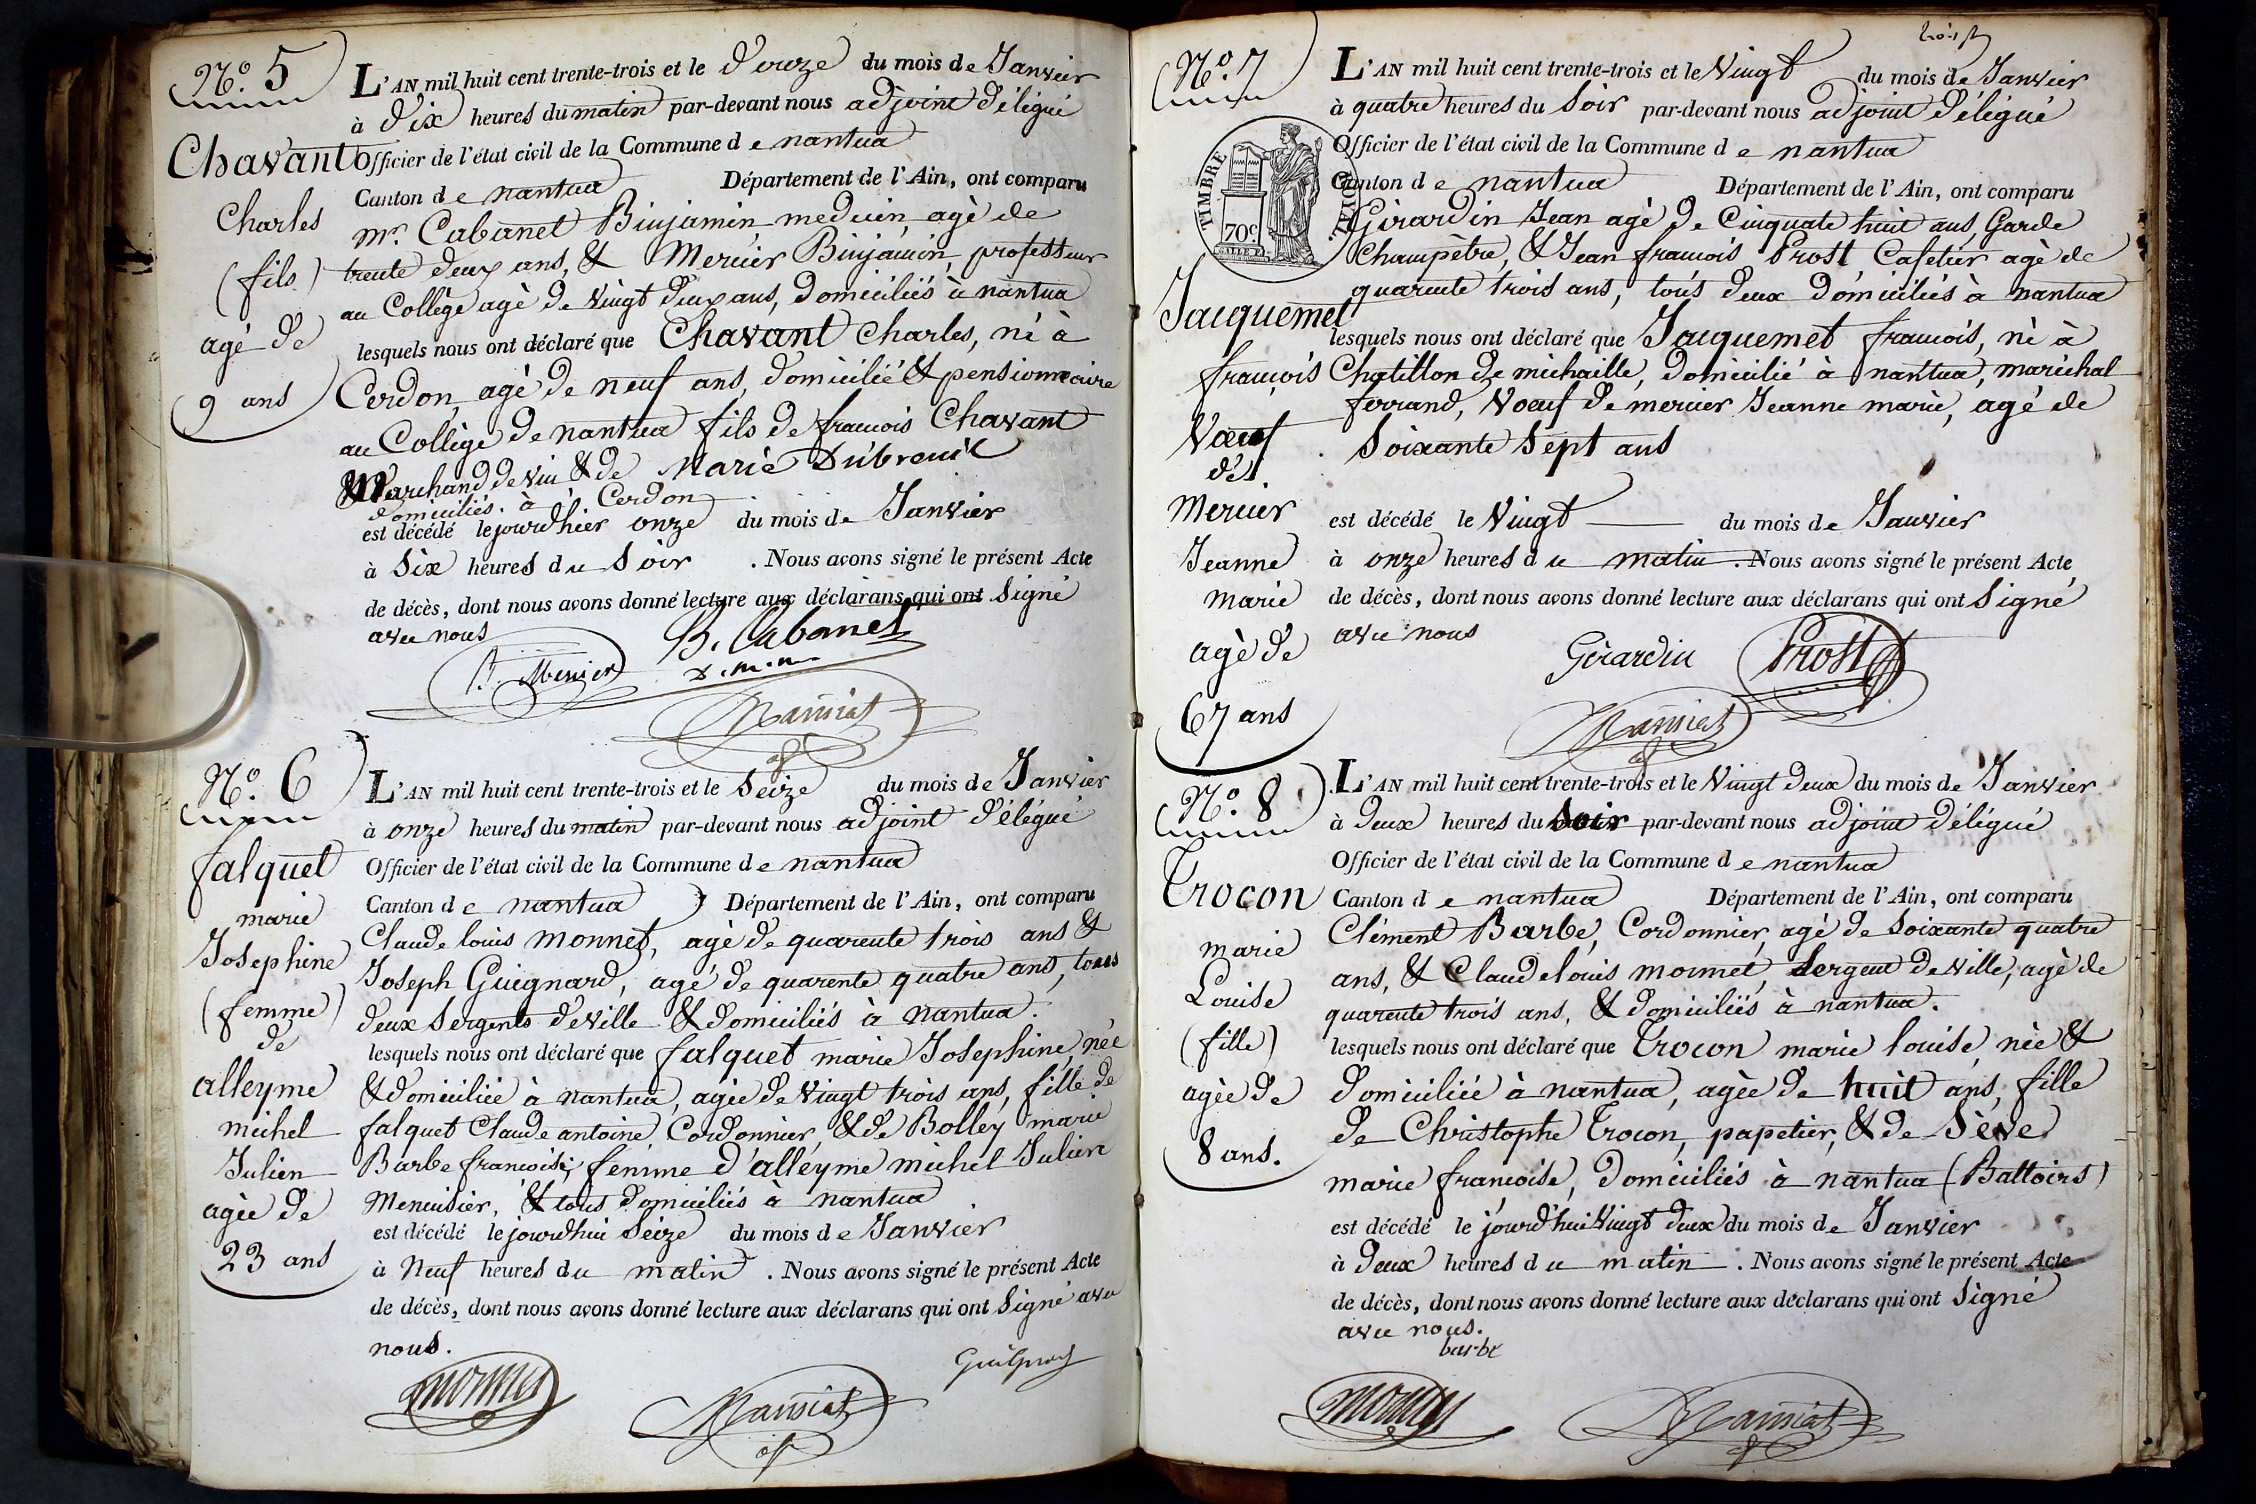 N.o 5
Chavant
Charles
(fils)
agé de
9 ans
L'AN mil huit cent trente-trois et le douze du mois de Janvier
à dix heures du matin par-devant nous adjoint délégué
Officier de l'état civil de la Commune de nantua
Canton de nantua Département de l'Ain, ont comparu
mr. Cabanet Binjamin, medecin, agè de
trente deux ans, & Mercier Binjamin, professeur
au Collège agè de vingt deux ans, domiciliés à nantua
lesquels nous ont déclaré que Chavant Charles, né à
Cerdon, agè de neuf ans, domicilié & pensionnaire
au Collège de nantua fils de francois Chavant
Marchand de vin & de Marie Dubreuil
domiciliés à Cerdon
est décédé le jourd'hier onze du mois de Janvier
à Six heures du Soir. Nous avons signé le présent Acte
de décès, dont nous avons donné lecture aux déclarans qui ont Signé
avec nous
B. Mercier B. Cabanet
D. m. m.
N.o 6
falquet
marie
Josephine
(femme)
de
alleyme
michel
Julien
agèe de
23 ans
L'AN mil huit cent trente-trois et le Seize du mois de Janvier
à onze heures du matin par-devant nous adjoint délégué
Officier de l'état civil de la Commune de nantua
Canton de nantua Département de l'Ain, ont comparu
Claude louis monnet, agè de quarente trois ans &
Joseph Guignard, agé de quarente quatre ans, tous
deux Sergents de ville & domiciliés à nantua.
lesquels nous ont déclaré que falquet marie Josephine, née
& domiciliée à nantua, agèe de vingt trois ans, fille de
falquet Claude antoine, Cordonnier, & de Bolley marie
Barbe francoise, femme d'alleyme michel Julien
Menuisier, & tous domiciliés à nantua
est décédé le jourd'hui Seize du mois de Janvier
à Neuf heures du matin. Nous avons signé le présent Acte
de décès, dont nous avons donné lecture aux déclarans qui ont Signé avec
nous.
monnet
N.o 7
TIMBRE ROYAL
70c
Jacquemet
francois
Vœuf
de
Mercier
Jeanne
marie
agè de
67 ans
L'AN mil huit cent trente-trois et le Vingt du mois de Janvier
à quatre heures du Soir par-devant nous adjoint délégué
Officier de l'état civil de la Commune de nantua
Canton de nantua Département de l'Ain, ont comparu
Girardin Jean agè de Cinquate huit ans, Garde
Champêtre, & Jean francois Prost Cafetier agè de
quarente trois ans, tous deux domiciliés à nantua
lesquels nous ont déclaré que Jacquemet francois, né à
Chatillon de michaille, domicilié à nantua, maréchal
ferrand, Vœuf de mercier Jeanne marie, agé de
Soixante Sept ans
est décédé le Vingt du mois de Janvier
à onze heures du matin. Nous avons signé le présent Acte
de décès, dont nous avons donné lecture aux déclarans qui ont Signé
avec nous
Girardin Prost
N.o 8
Trocon
marie
Louise
(fille)
agèe de
8 ans.
L'AN mil huit cent trente-trois et le Vingt deux du mois de Janvier
à deux heures du Soir par-devant nous adjoint délégué
Officier de l'état civil de la Commune de nantua
Canton de nantua Département de l'Ain, ont comparu
Clément Barbe, Cordonnier, agé de Soixante quatre
ans, & Claude louis monnet, Sergent de ville, agè de
quarente trois ans, & domiciliés à nantua.
lesquels nous ont déclaré que Trocon marie louise, née &
domiciliée à nantua, agèe de huit ans, fille
de Christophe Trocon, papetier, & de Sève
marie francoise, domiciliés à nantua (Battoirs)
est décédé le jourd'hui Vingt deux du mois de Janvier
à deux heures du matin. Nous avons signé le présent Acte
de décès, dont nous avons donné lecture aux déclarans qui ont Signé
avec nous.
barbe
monnet